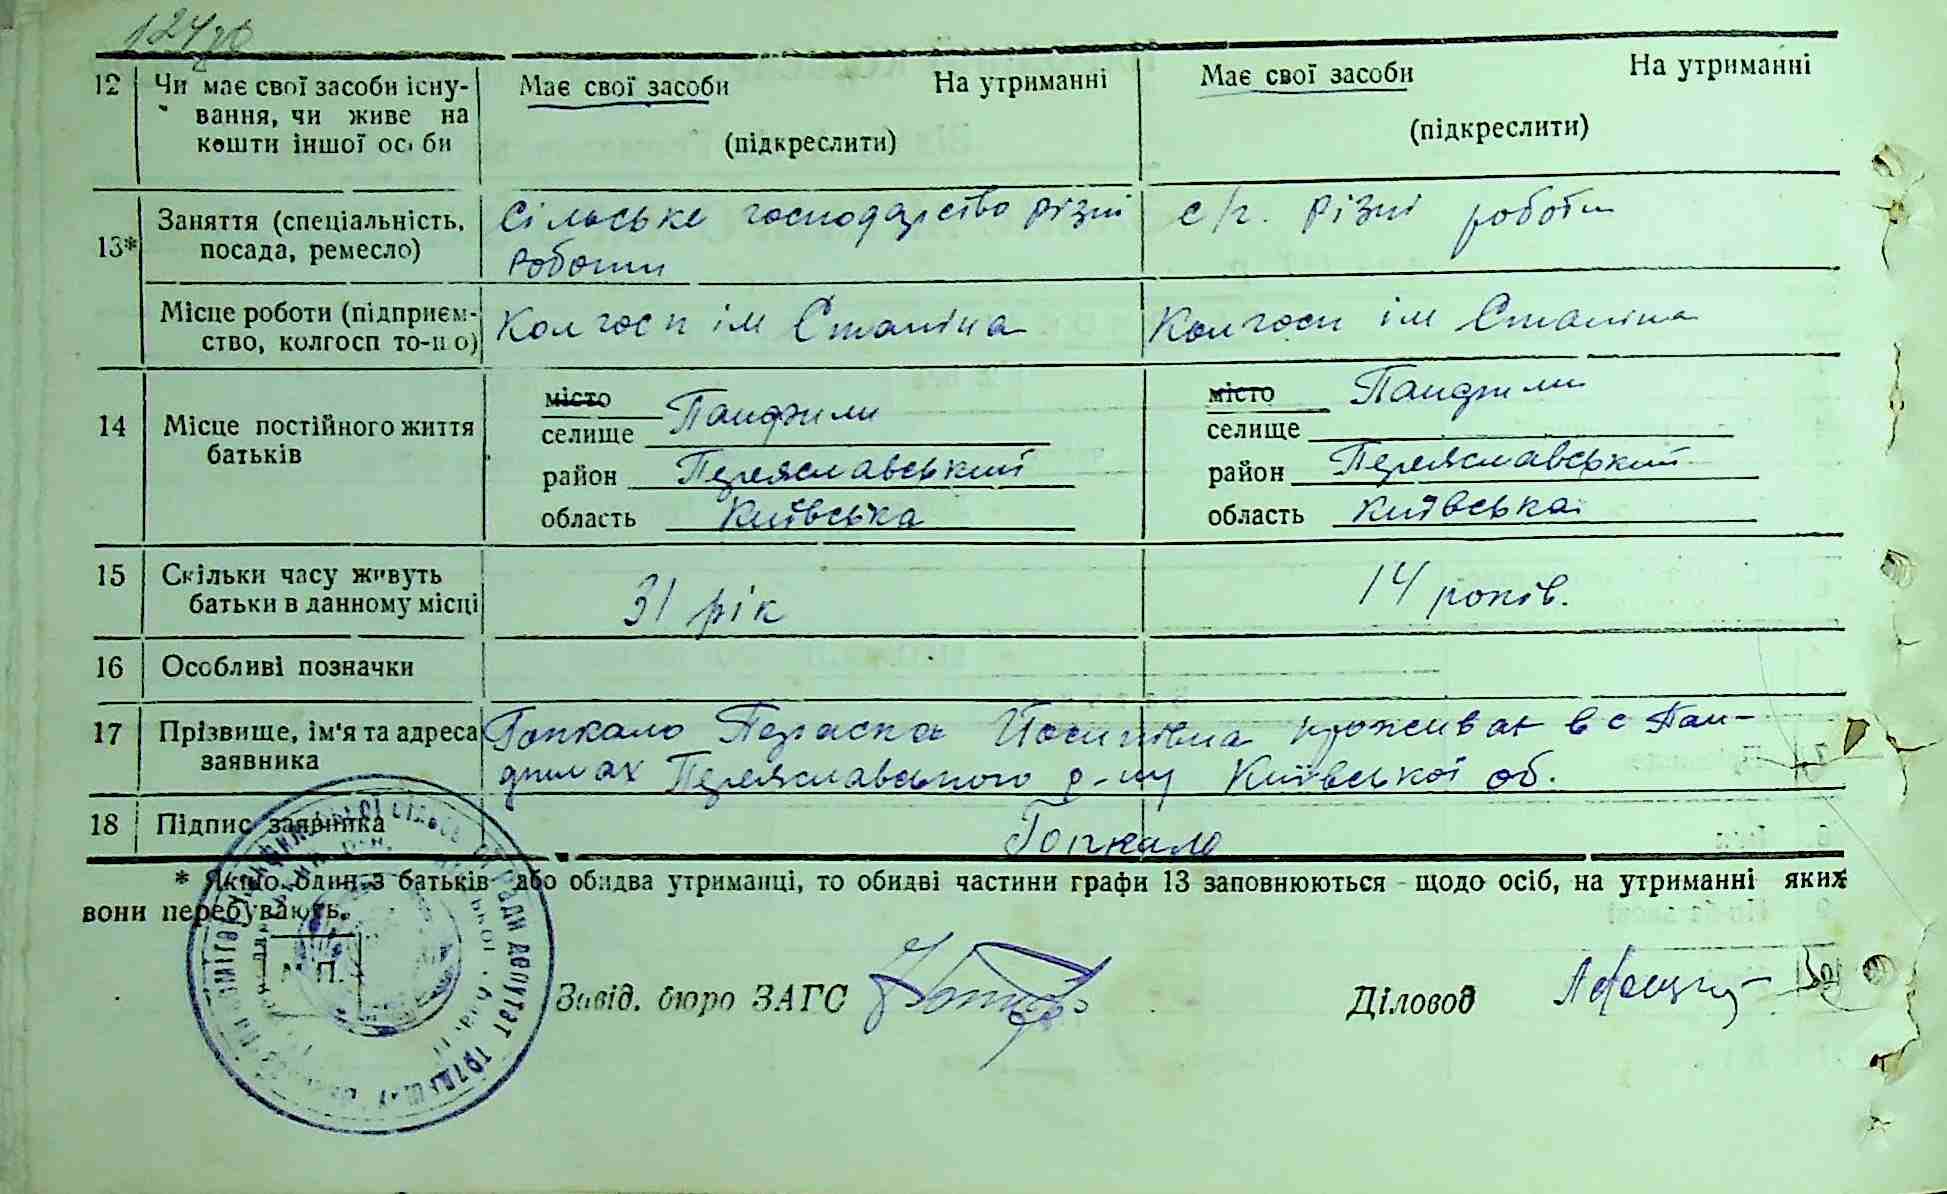 12 Чи має свої засоби існу- Має свої засоби На утриманні Має свої засоби На утриманні
вання, чи живе на
кошти іншої особи (підкреслити) (підкреслити)
13* Заняття (спеціальність, Сільське господарство різні с/г. різні роботи
посада, ремесло) роботи
Місце роботи (підприєм- Колгосп ім Сталіна Колгосп ім Сталіна
ство, колгосп то-що)
місто Панфили місто Панфили
14 Місце постійного життя селище селище
батьків район Переяславський район Переяславський
область Київська область Київська
15 Скільки часу живуть 31 рік 14 років.
батьки в данному місці
16 Особливі позначки
17 Прізвище, ім'я та адреса Гопкало Параска Йосипівна проживає в с Пан-
заявника филах Переяславського р-ну Київської об.
18 Підпис заявника Гопкало
* Якщо один з батьків або обидва утриманці, то обидві частини графи 13 заповнюються щодо осіб, на утриманні яких
вони перебувають.
М.П.
Завід. бюро ЗАГС Діловод